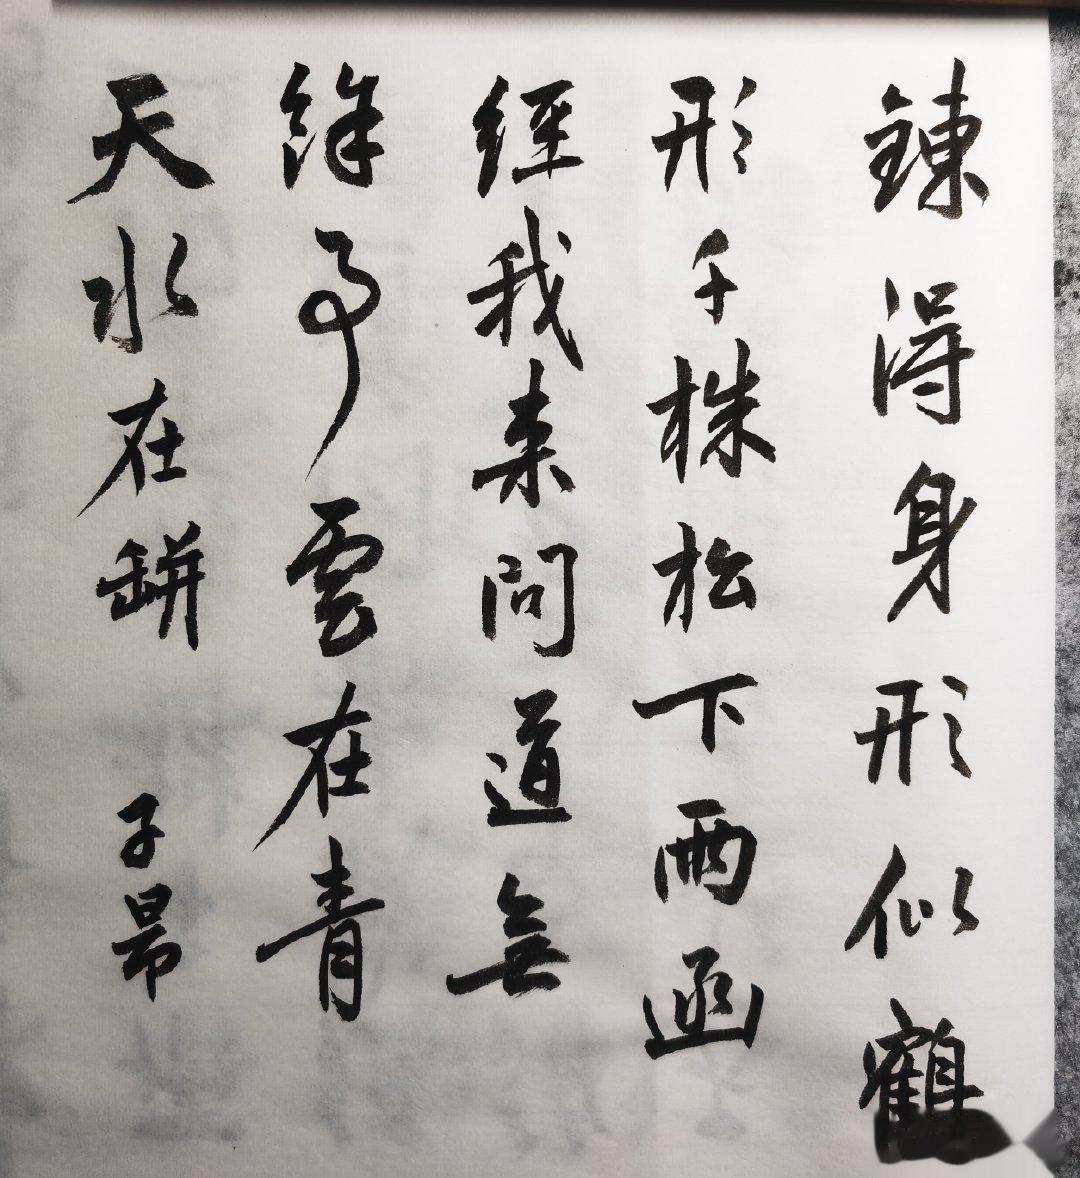 鍊得身形似鶴
形千株松下兩函
經我来問道無
餘事雲在青
天水在缾 子昂